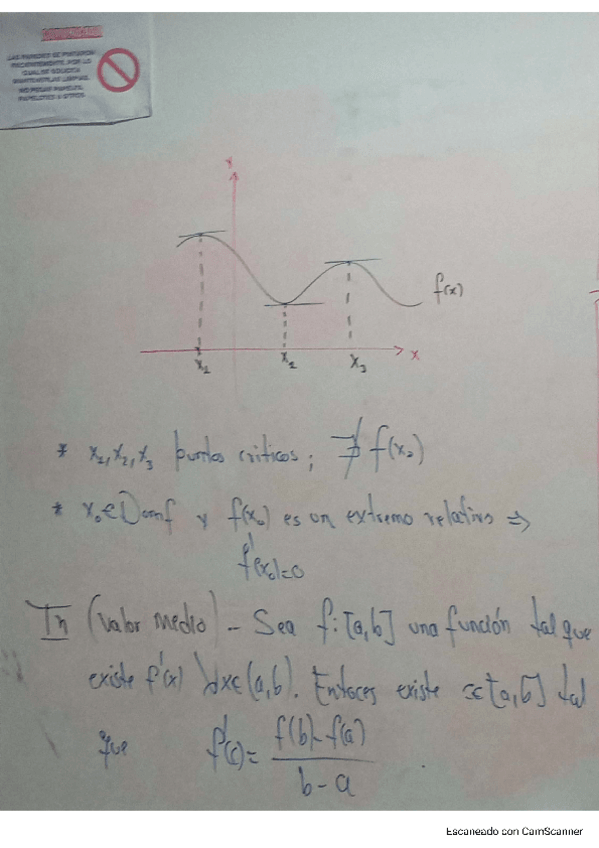 LAS PAREDES SE PINTARON
RECIENTEMENTE, POR LO
CUAL SE SOLICITA
MANTENERLAS LIMPIAS.
NO PEGAR PAPELES,
y
f(x)
x₁ x₂ x₃ x
* x₁, x₂, x₃ puntos criticos; ∄ f(x₀)
* x₀ ∈ Dom f y f(x₀) es un extremo relativo ⇒
f'(x₀)=0
(valor medio) - Sea f: [a,b] una función tal que
existe f'(x) ∀x∈(a,b). Entonces existe [a,b] tal
que f'(c) = f(b)-f(a) / b-a
Escaneado con CamScanner